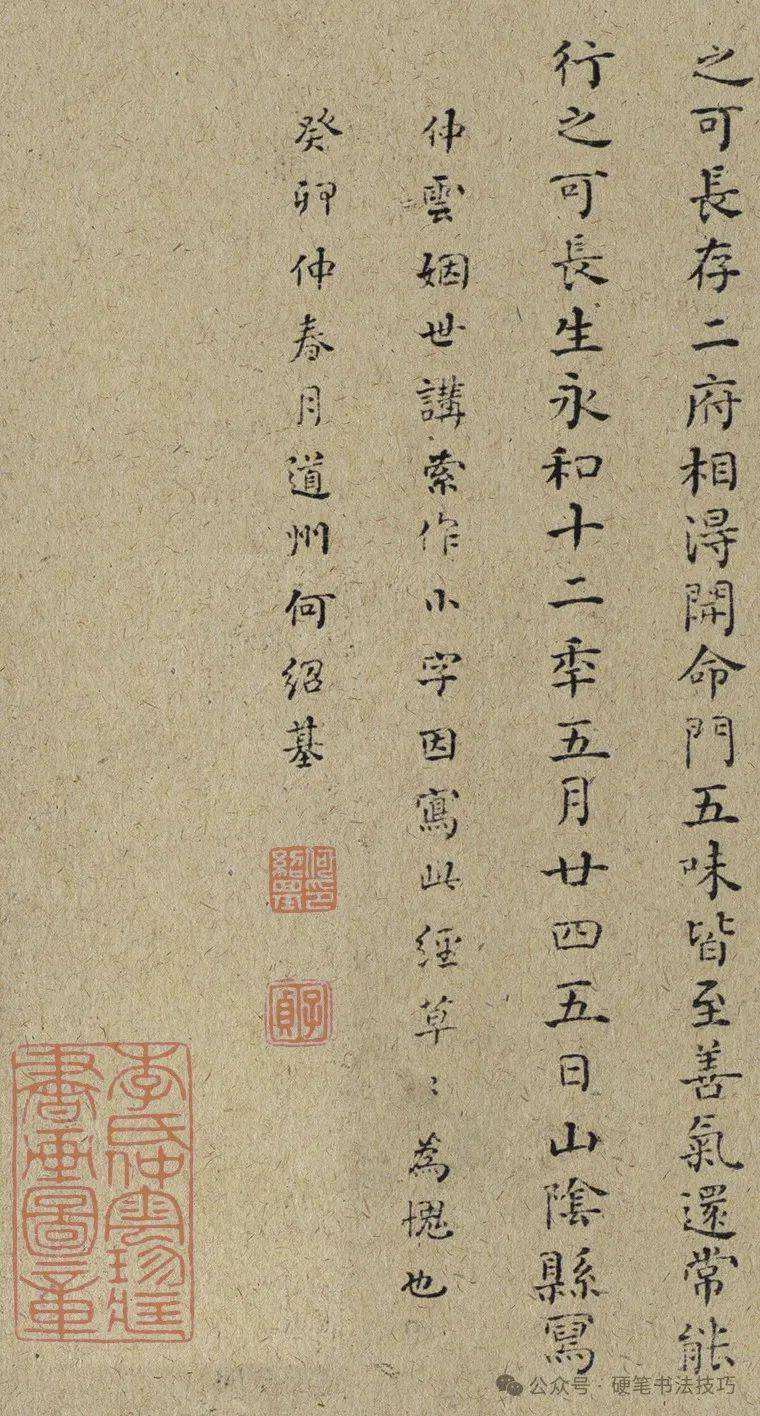 之可長存二府相淂開命門五味皆至善氣還常能
行之可長生永和十二秊五月廿四五日山陰縣寫
仲雲姻世講索作小字因寫此經草〻為愧也
癸卯仲春月道州何紹基
何紹基印
子貞
李氏仲雲珍藏
書畫圖章
公众号·硬笔书法技巧